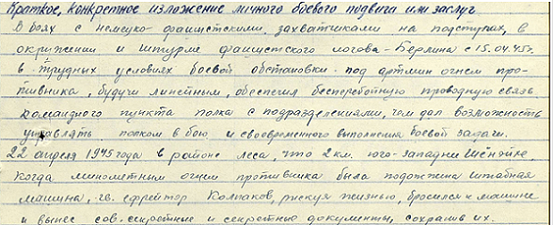 Краткое, конкретное изложение личного боевого подвига или заслуг
В боях с немецко-фашистскими захватчиками на подступах, в
окружении и штурме фашистского логова - Берлина с 15.04.45г.
в трудных условиях боевой обстановки под артмин огнем про-
тивника, будучи линейным, обеспечил бесперебойную проводную связь
командного пункта полка с подразделениями, чем дал возможность
управлять полком в бою и своевременного выполнения боевой задачи.
22 апреля 1945 года в районе леса, что 2 км. юго-западнее
когда минометным огнем противника была подожжена штабная
машина, гв. ефрейтор Колпаков, рискуя жизнью, бросился к машине
и вынес сов. секретные и секретные документы, сохранив их.